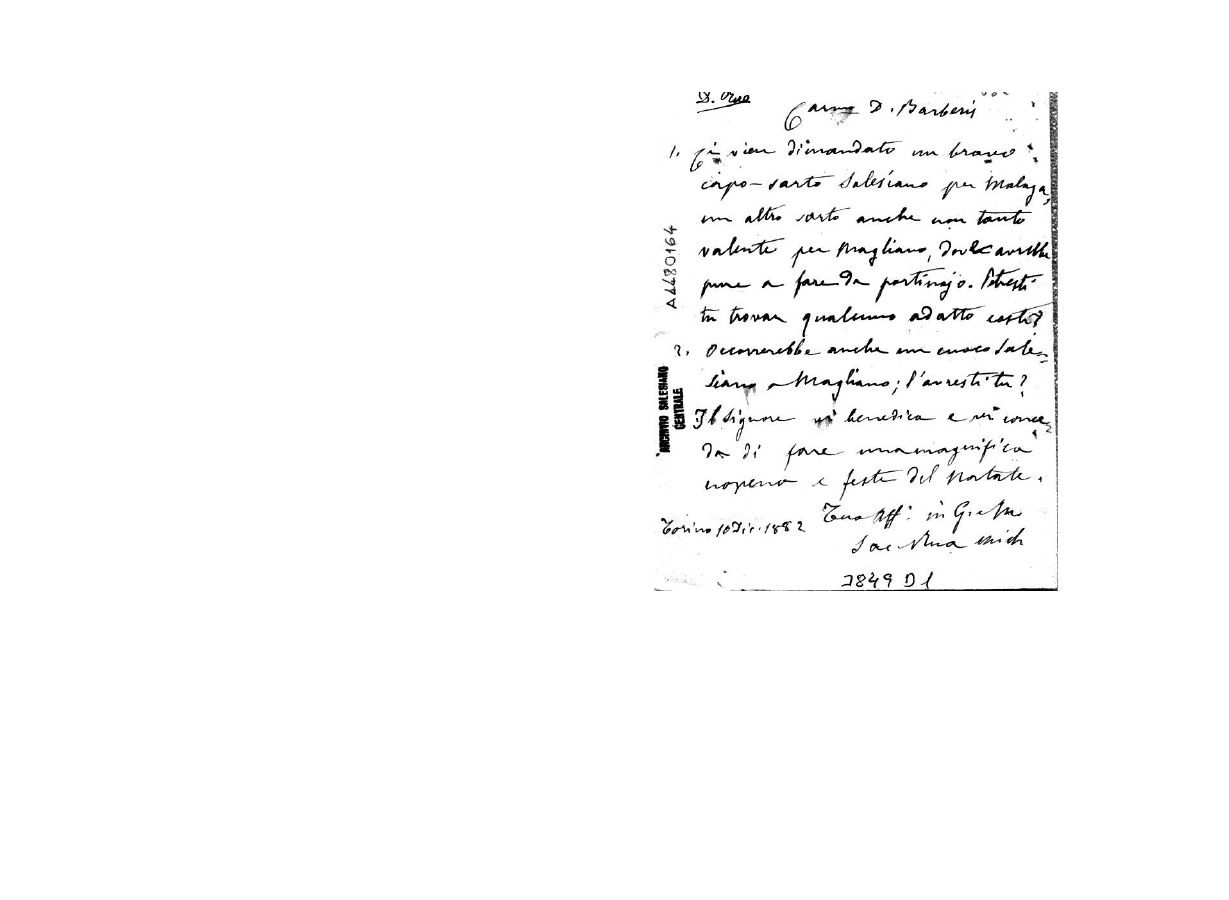 D. Rua
Carmo D. Barberis
1. Ci vien dimandato un bravo
capo-sarto Salesiano per Malaga,
un altro sarto anche non tanto
valente per Magliano, dove avrebbe
pure a fare da portinajo. Potresti
tu trovar qualcuno adatto costì?
2. Occorrerebbe anche un cuoco Sale=
siano a Magliano; l'avresti tu?
Il Signore vi benedica e vi conce=
da di fare una magnifica
novena e feste del Natale.
Tuo Aff. in G. e M.
Torino 10 Dic. 1882
Sac. Rua Mich
A4480164
ARCHIVIO SALESIANO
CENTRALE
3849 D1